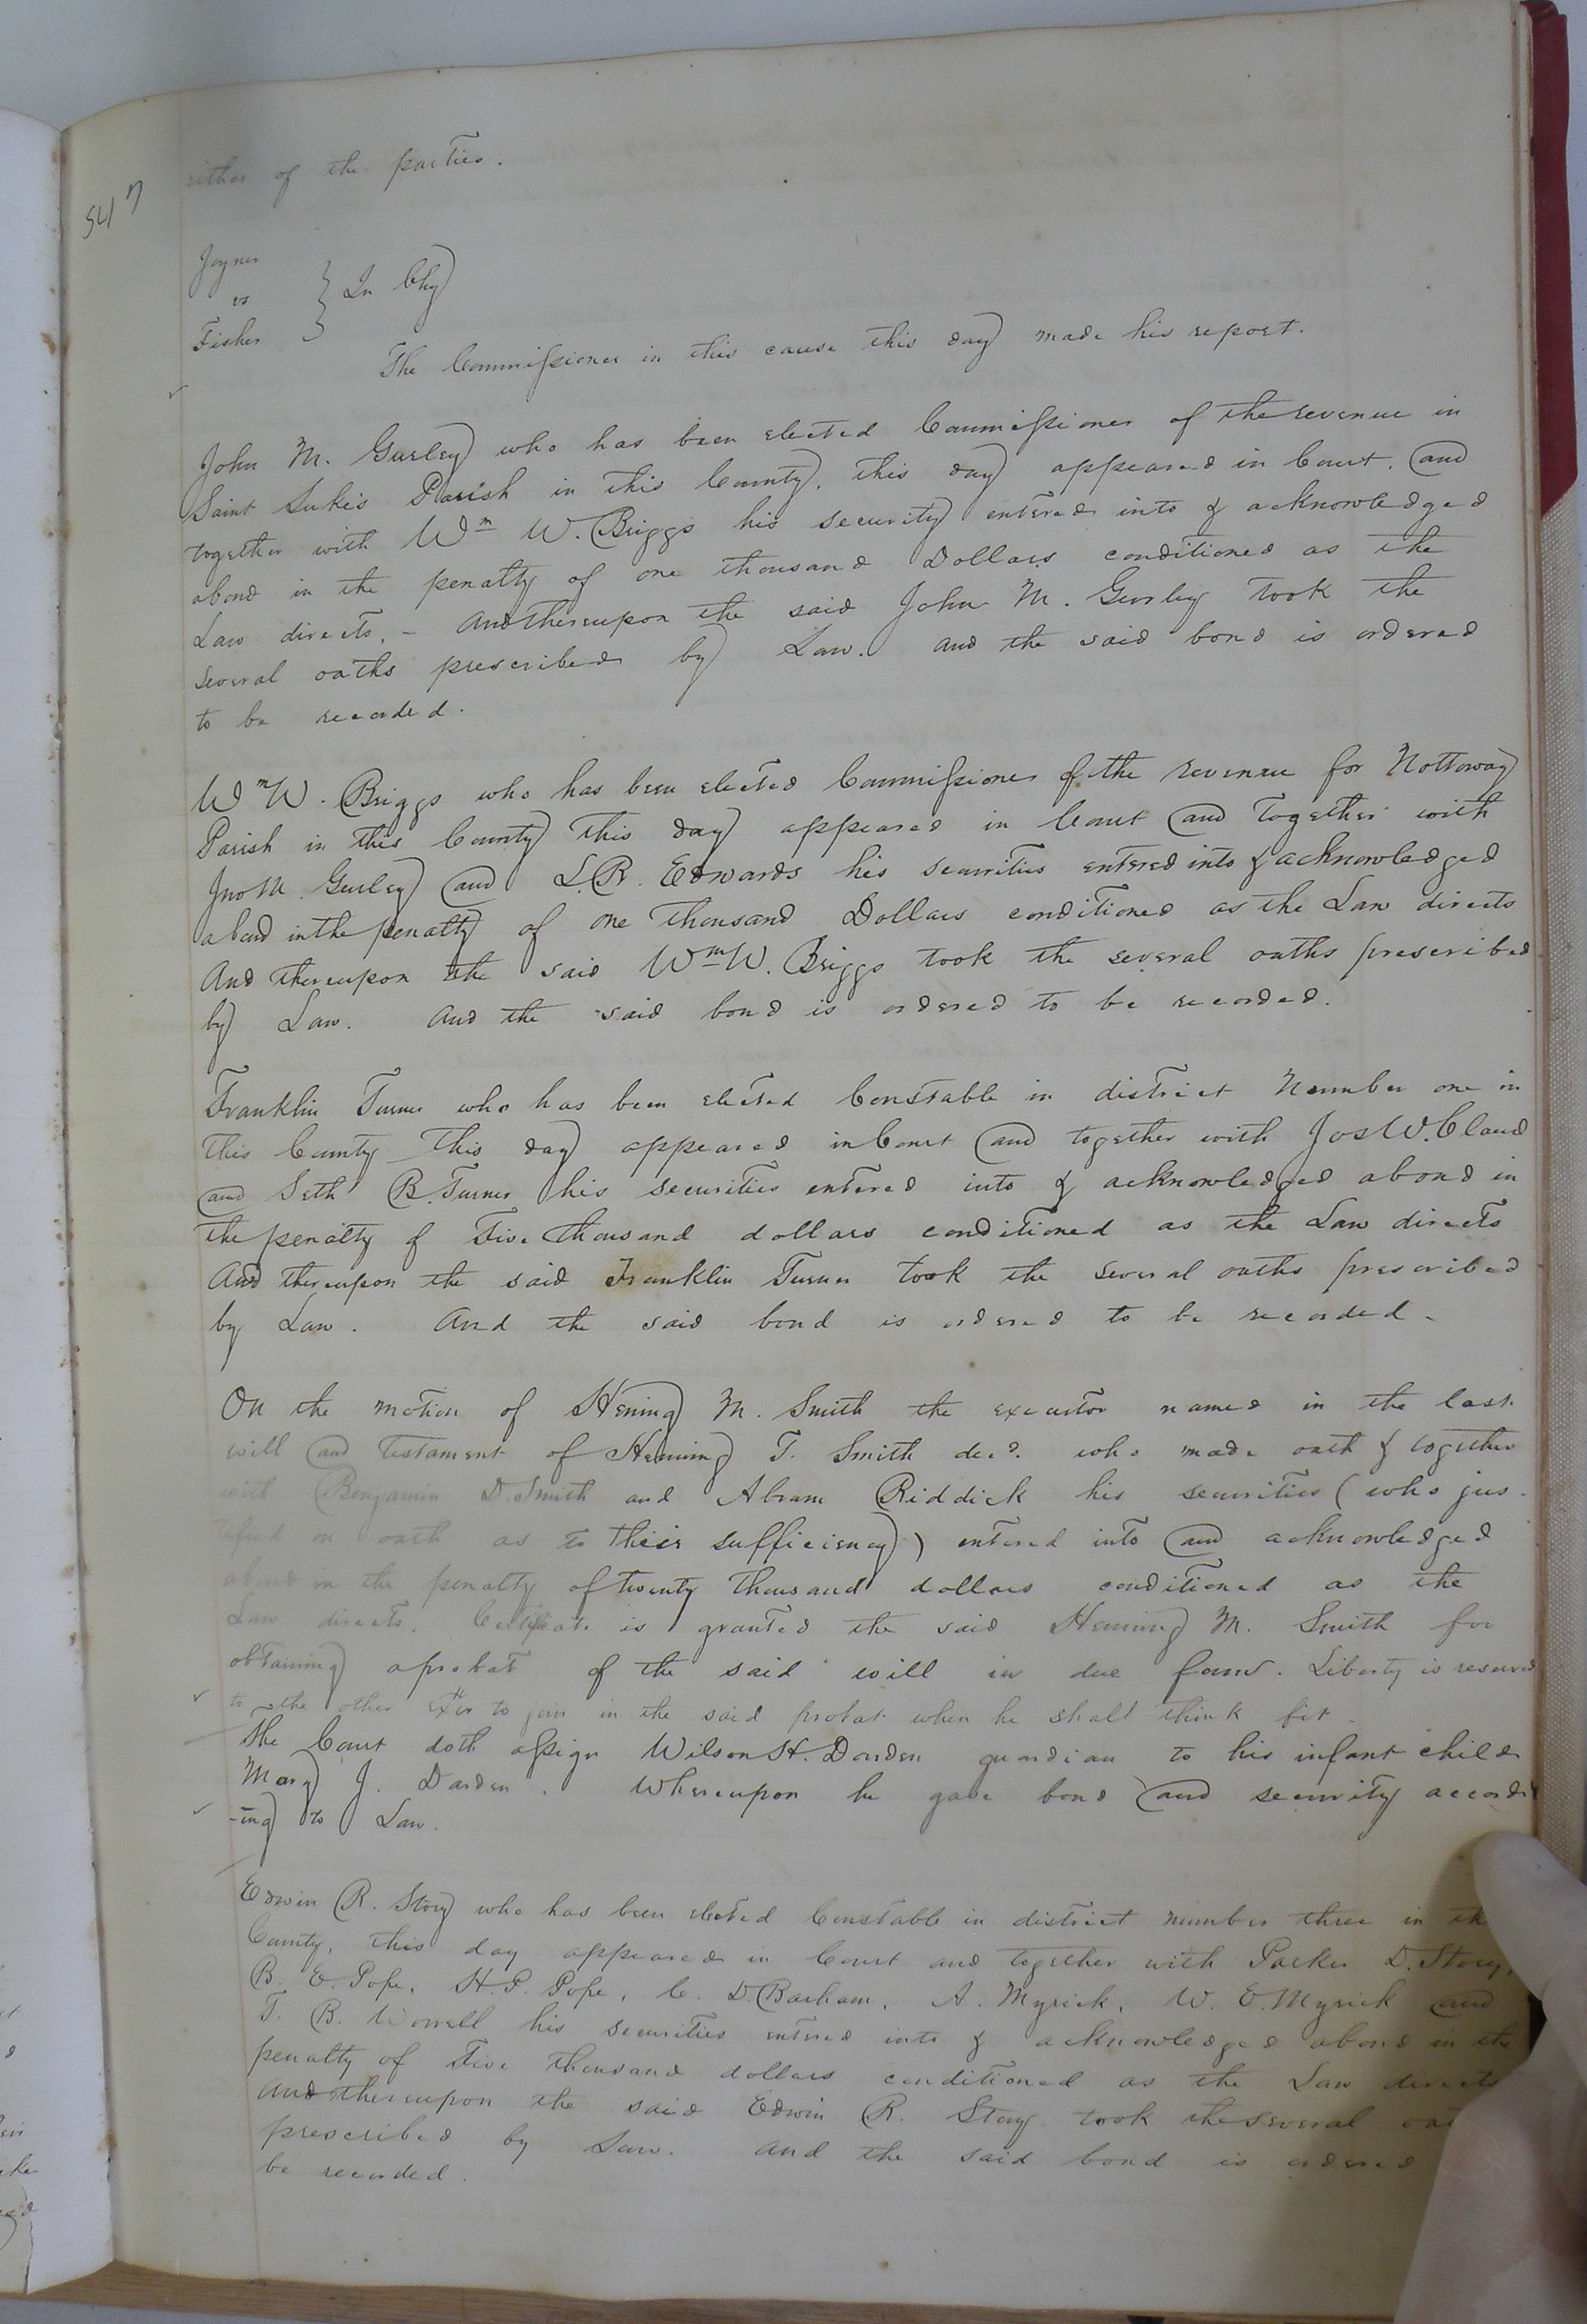 either of the parties.
547
Joyner
vs } In Chy
Fisher
The Commissioner in this cause this day made his report.
John M. Gurley who has been elected Commissioner of the revenue in
Saint Luke's Parish in this County, this day appeared in Court, and
together with Wm W. Briggs his security entered into & acknowledged
abond in the penalty of one thousand Dollars conditioned as the
Law directs. - And thereupon the said John M. Gurley took the
several oaths prescribed by Law. And the said bond is ordered
to be recorded.
Wm W. Briggs who has been elected Commissioner of the revenue for Nottoway
Parish in this County this day appeared in Court and together with
Jno M. Gurley and L. R. Edwards his securities entered into & acknowledged
abond in the penalty of one thousand Dollars conditioned as the Law directs
And thereupon the said Wm W. Briggs took the several oaths prescribed
by Law. And the said bond is ordered to be recorded.
Franklin Turner who has been elected Constable in district Number one in
this County this day appeared in Court and together with Jos W. Claud
and Seth B. Turner his securities entered into & acknowledged abond in
the penalty of Five thousand dollars conditioned as the Law directs
And thereupon the said Franklin Turner took the several oaths prescribed
by Law. And the said bond is ordered to be recorded.
On the motion of Hening M. Smith the executor named in the last
will and testament of Hening T. Smith decd. who made oath & together
with Benjamin D. Smith and Abram Riddick his securities (who jus-
tified on oath as to their sufficiency) entered into and acknowledged
abond in the penalty of twenty thousand dollars conditioned as the
Law directs. Certificate is granted the said Hening M. Smith for
obtaining aprobat of the said will in due form. Liberty is reserved
to the other Exor to join in the said probat when he shall think fit.
The Court doth assign Wilson H. Darden guardian to his infant child
Mary J. Darden. Whereupon he gave bond and security accord
-ing to Law.
Edwin R. Story who has been elected Constable in district number three in
County, this day appeared in Court and together with Parker D. Story,
B. E. Pope, H. P. Pope, C. D. Barham, A. Myrick, W. E. Myrick and
T. B. Worrell his securities entered into & acknowledged abond in the
penalty of Five thousand dollars conditioned as the Law directs
And thereupon the said Edwin R. Story took the several
prescribed by Law. And the said bond is ordered
be recorded.